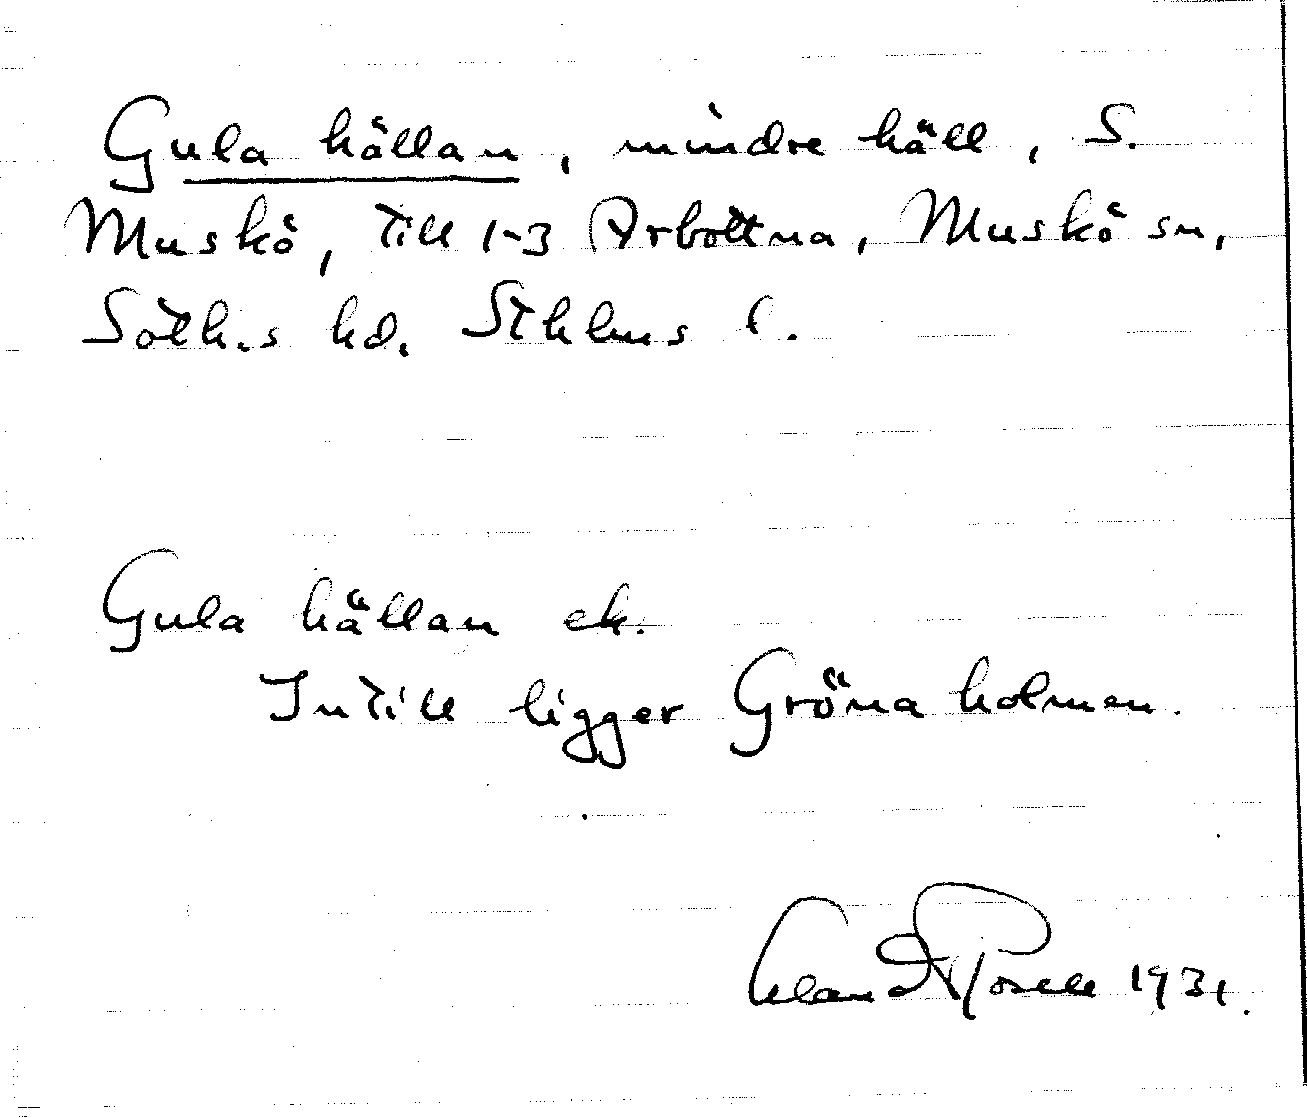 Gula hällan, mindre häll, S.
Muskö, till 1-3 Arbottna, Muskö sn,
Soth.s hd. Sthlms l.
Gula hällan ek.
Intill ligger Gröna holmen.
1931.